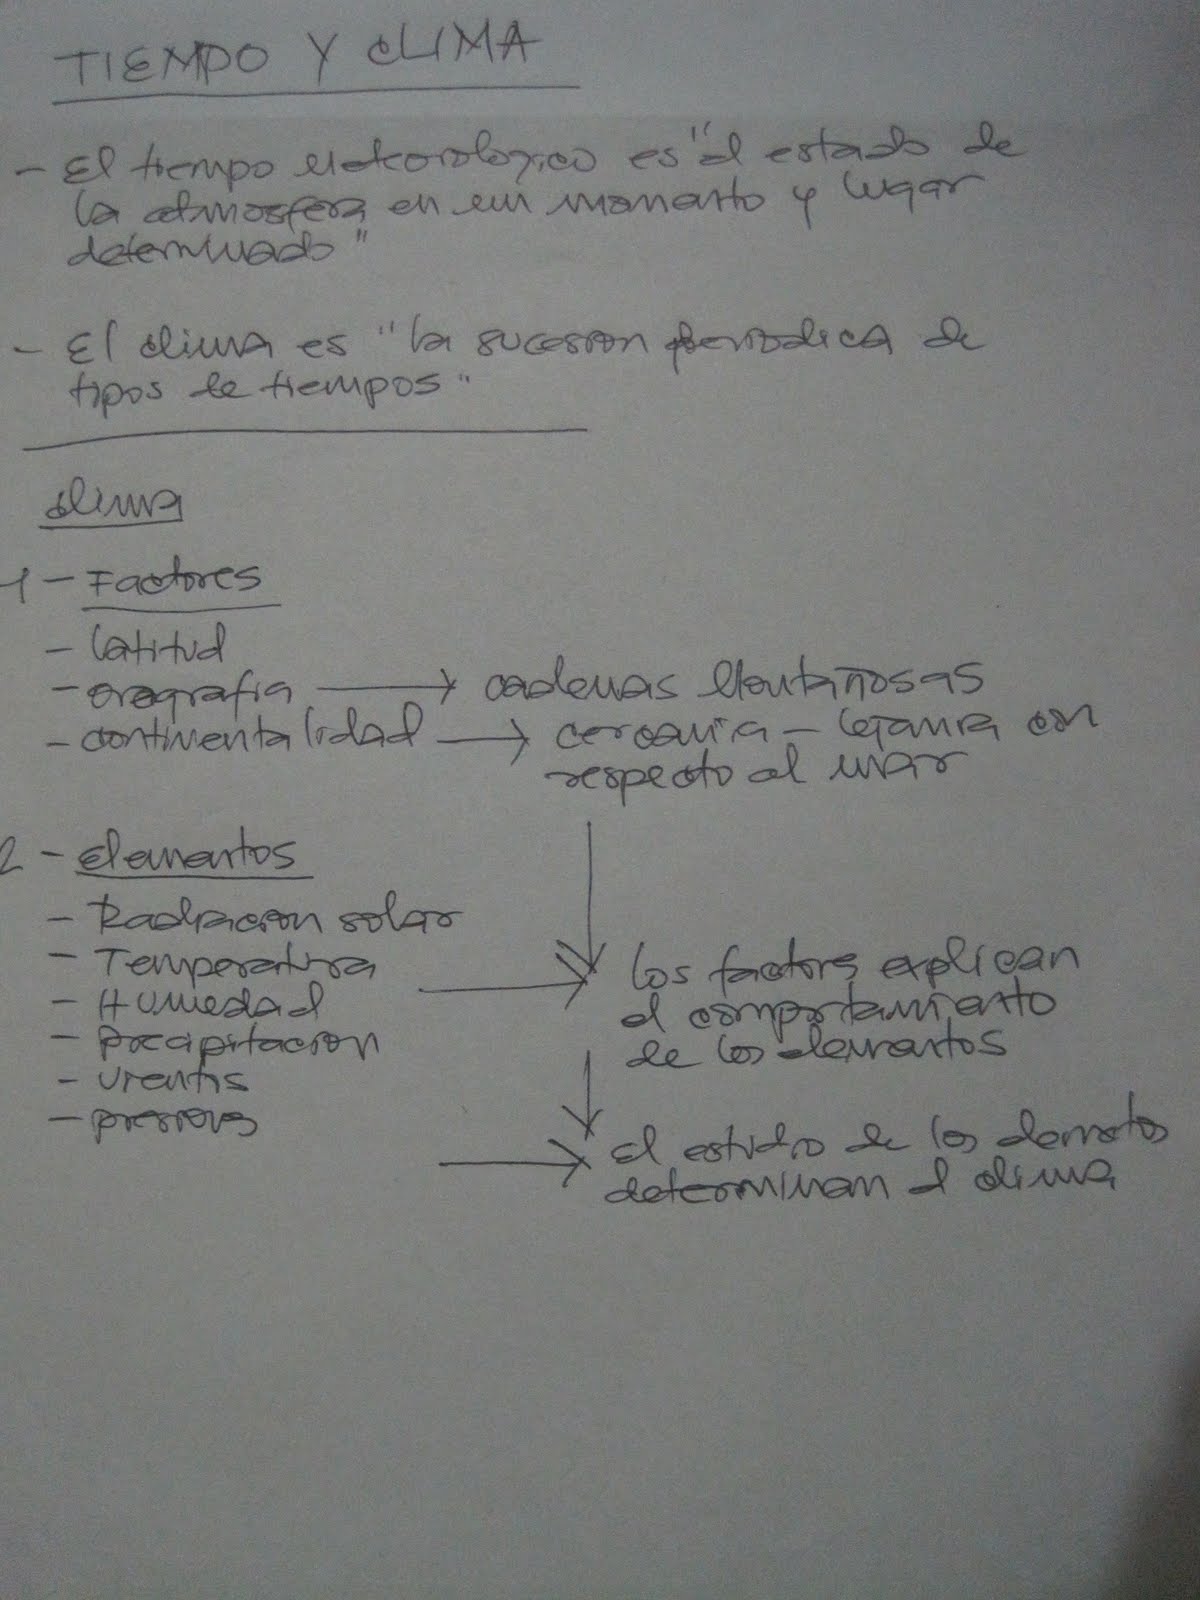 TIEMPO Y CLIMA
- El tiempo meteorologico es "el estado de
la atmosfera en un momento y lugar
determinado"
- El clima es "la sucesion periodica de
tipos de tiempos"
clima
1 - Factores
- latitud
- orografia → cadenas montañosas
- continentalidad → cercania - lejania con
respecto al mar
2 - Elementos
- Radiacion solar
- Temperatura
- Humedad
- precipitacion
- vientos
- presiones
los factores explican
el comportamiento
de los elementos
El estudio de los elementos
determinan el clima